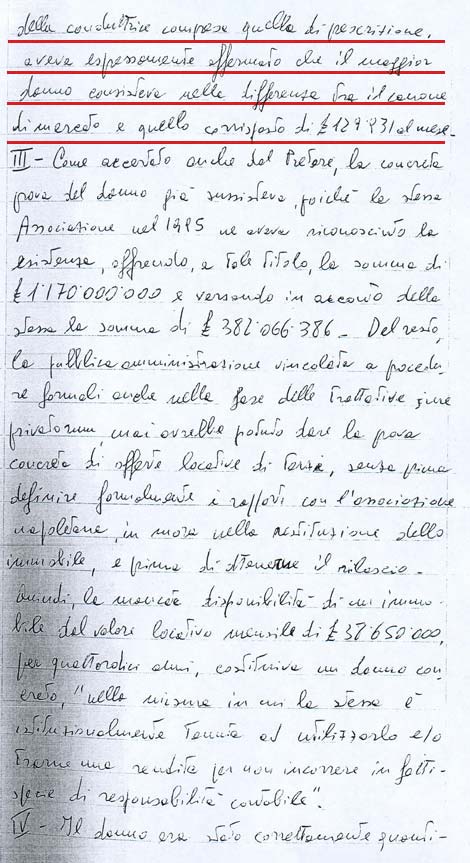 della conduttrice compresa quella di prescrizione,
aveva espressamente affermato che il maggior
danno consisteva nella differenza tra il canone
di mercato e quello corrisposto di £ 129.931 al mese-
III - Come accertato anche dal Pretore, la concreta
prova del danno già sussisteva, poiché la stessa
Associazione nel 1995 ne aveva riconosciuto la
esistenza, offrendo, a tale titolo, la somma di
£ 1.170.000.000 e versando in acconto della
stessa la somma di £ 382.066.386 - Del resto,
la pubblica amministrazione vincolata a procedu
re formali anche nella fase delle trattative jure
privatorum, mai avrebbe potuto dare la prova
concreta di offerte locative di terzi, senza prima
definire formalmente i rapporti con l'associazione
napoletana, in mora nella restituzione dello
immobile, e prima di ottenerne il rilascio-
Quindi, la mancata disponibilità di un immo-
bile del valore locativo mensile di £ 37.650.000,
per quattordici anni, costituiva un danno con
creto, "nella misura in cui la stessa è
istituzionalmente tenuta ad utilizzarlo e/o
trarne una rendita per non incorrere in fatti-
specie di responsabilità contabile".
IV - Il danno era stato correttamente quanti-